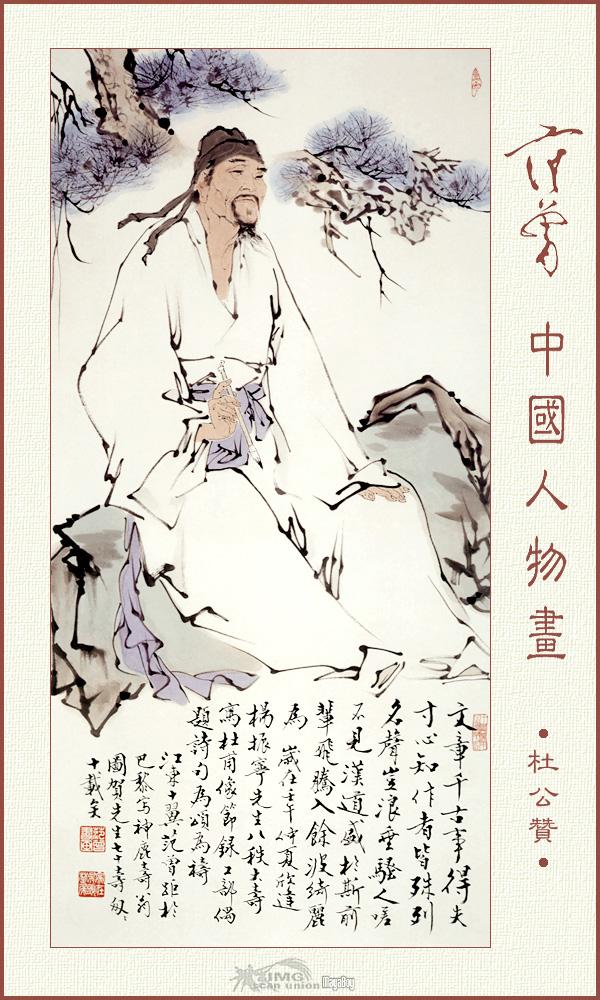 范曾
中國人物畫
•杜公贊•
文章千古事得失
寸心知作者皆殊列
名聲豈浪垂騷人嗟
不見漢道盛於斯前
輩飛騰入餘波綺麗
為 歲在壬午仲夏欣逢
楊振寧先生八秩大壽
寫杜甫像節錄工部偶
題詩句為頌為禱
江東十翼范曾距於
巴黎寫神鹿壽翁
圖賀先生七十壽匆匆
十載矣
IMG
scan union
MagaBoy